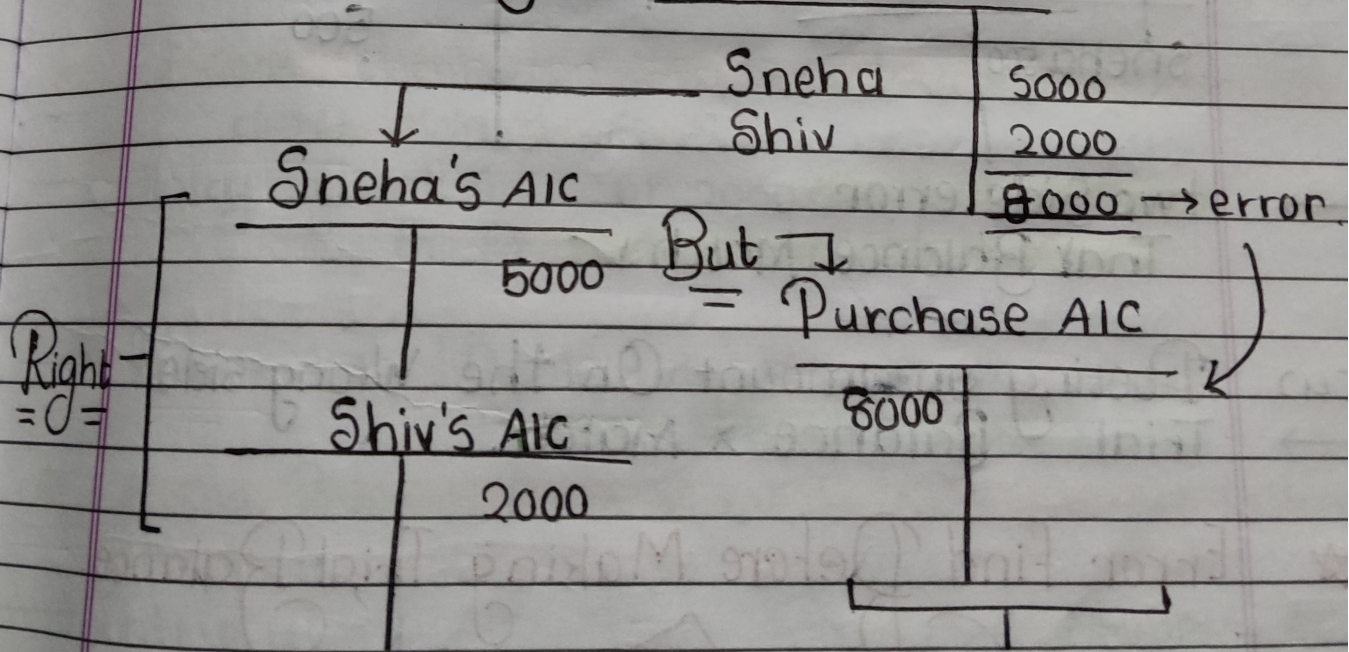 Sneha 5000
Shiv 2000
8000 → error.
Sneha's A/C
5000
But
Purchase A/C
Right
8000
Shiv's A/C
2000